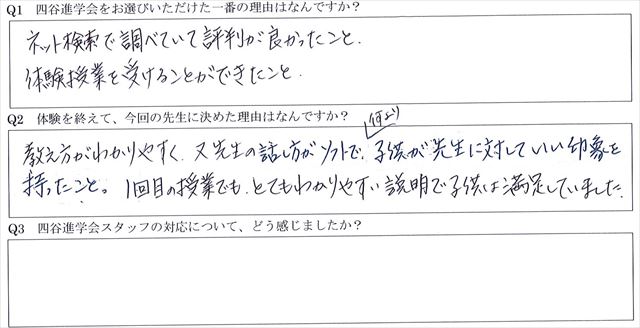 Q1 四谷進学会をお選びいただけた一番の理由はなんですか？
ネット検索で調べていて評判が良かったこと.
体験授業を受けることができたこと.
Q2 体験を終えて、今回の先生に決めた理由はなんですか？
何より
教え方がわかりやすく、又先生の話し方がソフトで、子供が先生に対していい印象を
持ったこと。1回目の授業でも、とてもわかりやすい説明で子供は満足していました.
Q3 四谷進学会スタッフの対応について、どう感じましたか？